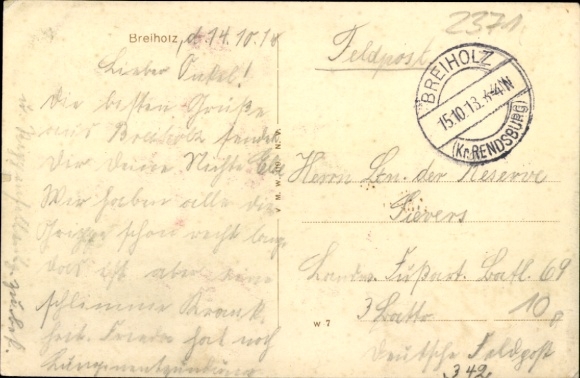 Breiholz, d. 14.10.18
Lieber Onkel!
Die besten Grüße
aus Breiholz sendet
Dir Deine Nichte Else
Wir haben alle die
Grippe schon recht lange
das ist aber keine
schlimme Krank
heit. Frieda hat noch
Lungenentzündung
2371
Feldpost
BREIHOLZ
15.10.18. 3-4 N
(Kr. RENDSBURG)
Herrn Ltn. der Reserve
Sievers
Landw. Fußart. Batl. 69
3 Battr
10
Deutsche Feldpost
342
W 7